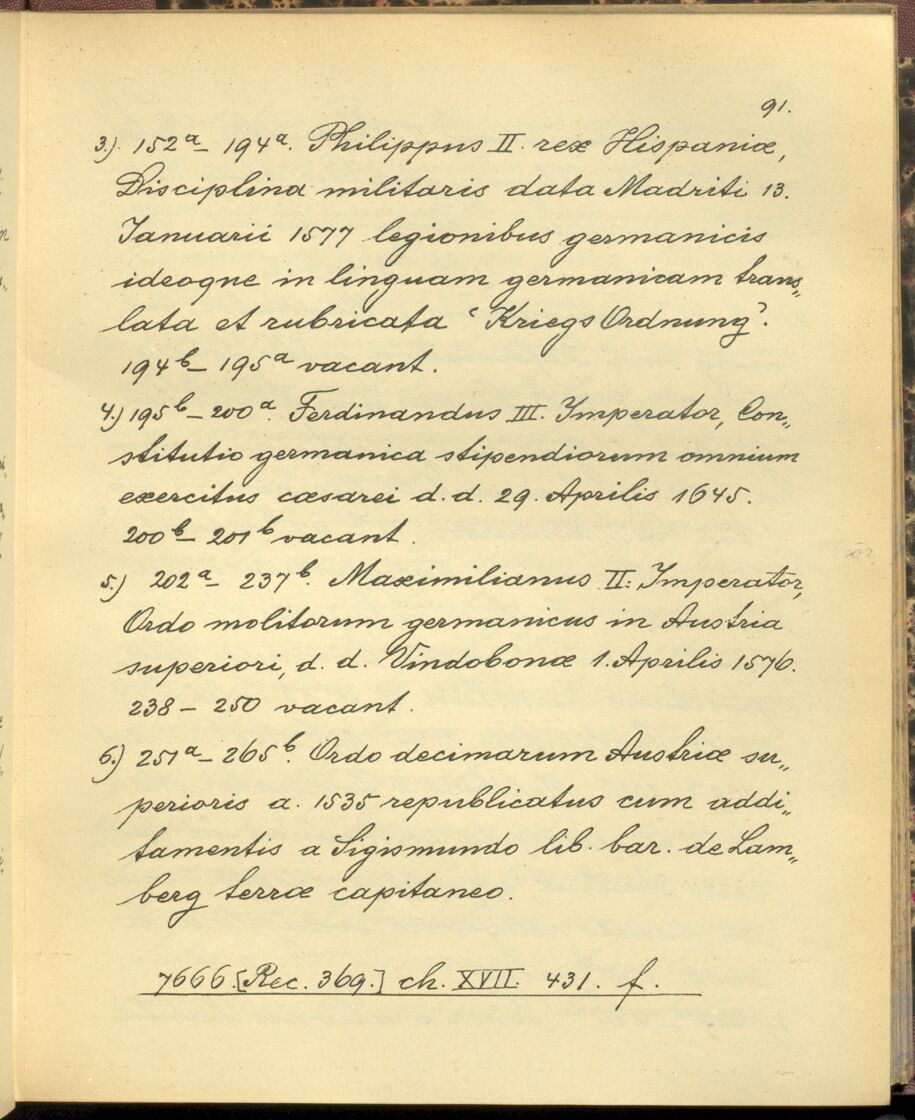 91.
3.) 152a – 194a. Philippus II. rex Hispaniæ,
Disciplina militaris data Madriti 13.
Ianuarii 1577 legionibus germanicis
ideoque in linguam germanicam trans„
lata et rubricata ‘Kriegs Ordnung’.
194b – 195a vacant.
4.) 195b – 200a Ferdinandus III. Imperator, Con„
stitutio germanica stipendiorum omnium
exercitus cæsarei d. d. 29. Aprilis 1645.
200b – 201b vacant.
5.) 202a – 237b. Maximilianus II: Imperator,
Ordo molitorum germanicus in Austria
superiori, d. d. Vindobonæ 1. Aprilis 1576.
238 – 250 vacant.
6.) 251a – 265b. Ordo decimarum Austriæ su„
perioris a. 1535 republicatus cum addi„
tamentis a Sigismundo lib. bar. de Lam„
berg terræ capitaneo.
7666.[Rec. 369.] ch. XVII. 431. f.